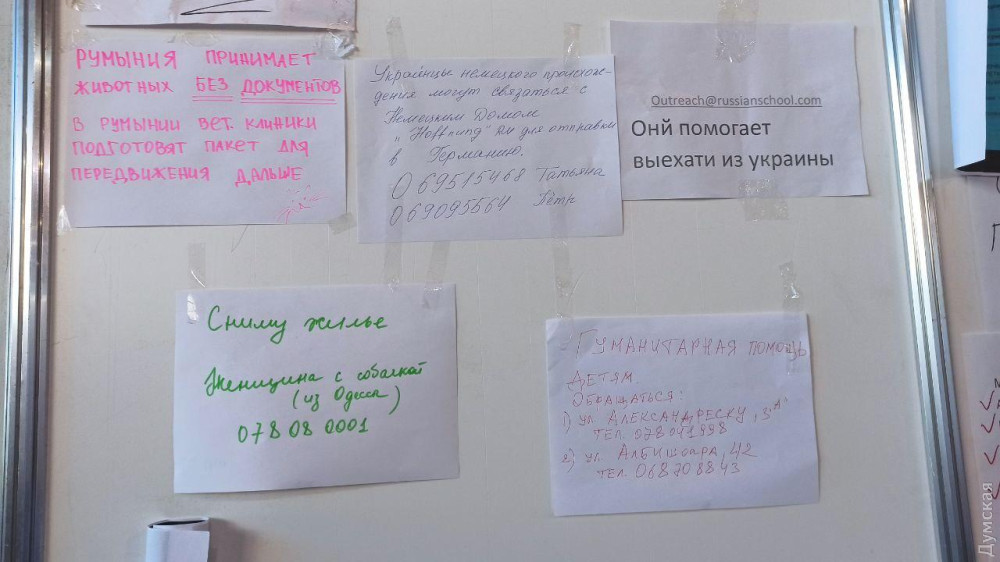 РУМЫНИЯ ПРИНИМАЕТ
ЖИВОТНЫХ БЕЗ ДОКУМЕНТОВ
В РУМЫНИИ ВЕТ. КЛИНИКИ
ПОДГОТОВЯТ ПАКЕТ ДЛЯ
ПЕРЕДВИЖЕНИЯ ДАЛЬШЕ
Украинцы немецкого происхож-
дения могут связаться с
Немецким Домом
"Hoffnung" для отправки
в Германию.
069515468 Татьяна
069095564 Пётр
Outreach@russianschool.com
Онй помогает
выехати из украины
Сниму жилье
Женщина с собакой
(из Одессы)
078 08 0001
Гуманитарная помощь
детям.
Обращаться:
1) ул. Александреску, 3 "А"
тел. 078041998
2) ул. Албишоара, 42
тел. 068708843
Думская